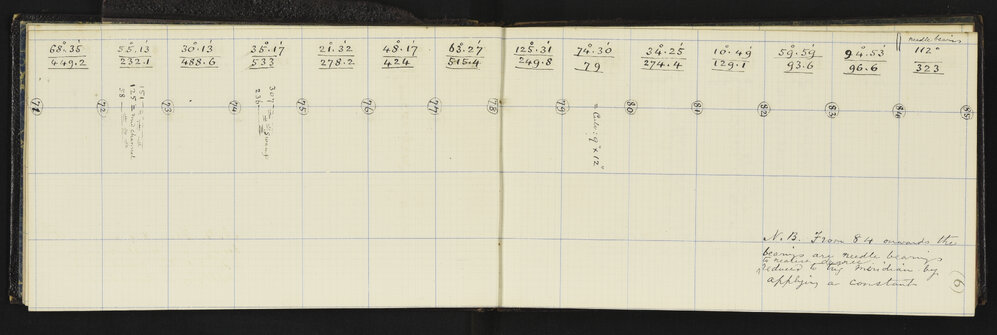 needle bearing
68°.35' 55°.13' 30°.13' 35°.17' 21°.32' 48°.17' 63°.27' 125°.31' 74°.30' 34°.25' 10°.49' 59°.59' 94°.53' 112°
449.2 232.1 488.6 533 278.2 424 515.4 249.8 79 274.4 129.1 93.6 96.6 323
71 72 73 74 75 76 77 78 79 80 81 82 83 84 85
151
125 = mid channel
58
307
236 = swamp
= Culv: 9" x 12"
N.B. From 84 onwards the
bearings are needle bearings
to nearest degree
reduced to trig meridian by
applying a constant
(6)